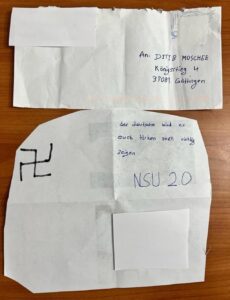 An: DITIB MOSCHEE
Königstieg 4
37081 Göttingen
Der deutsche wird es
euch türken
zeigen
NSU 2.0